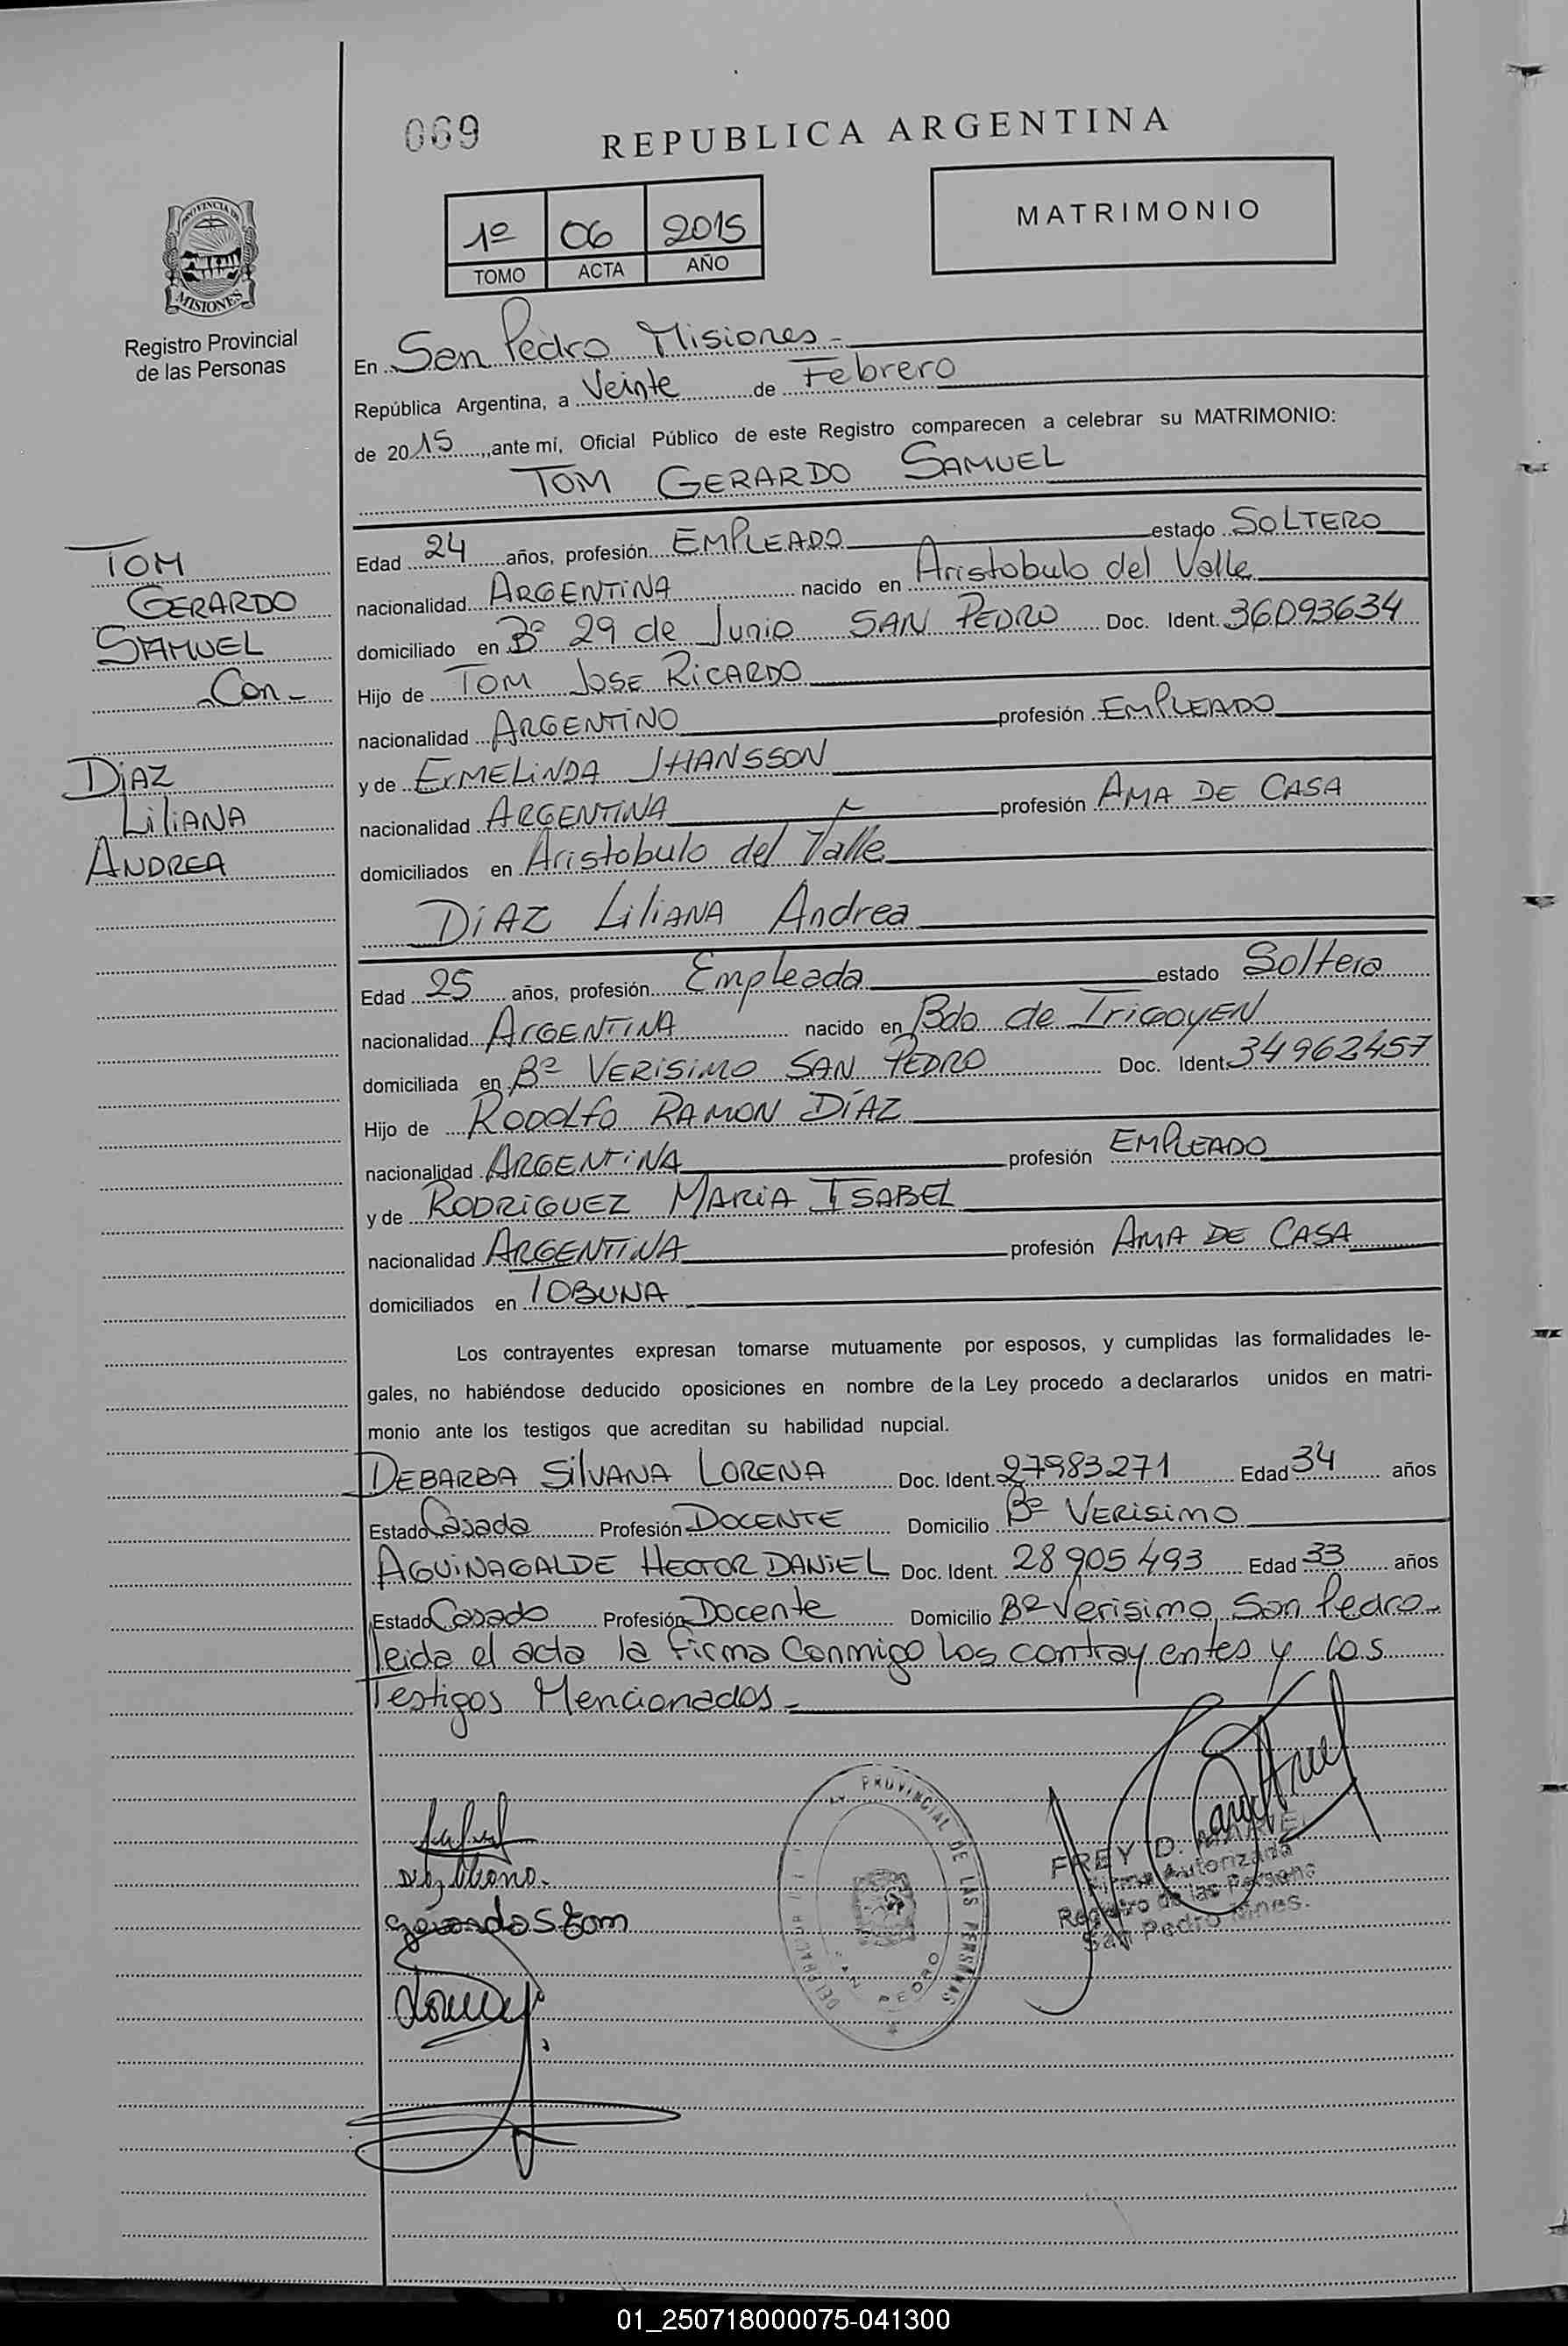 069
REPUBLICA ARGENTINA
1º 06 2015
TOMO ACTA AÑO
MATRIMONIO
PROVINCIA DE
MISIONES
Registro Provincial
de las Personas
En San Pedro Misiones
República Argentina, a Veinte de Febrero
de 2015, ante mí, Oficial Público de este Registro comparecen a celebrar su MATRIMONIO:
TOM GERARDO SAMUEL
Edad 24 años, profesión EMPLEADO estado SOLTERO
nacionalidad ARGENTINA nacido en Aristobulo del Valle
domiciliado en Bº 29 de Junio SAN PEDRO Doc. Ident. 36093634
Hijo de TOM JOSE RICARDO
nacionalidad ARGENTINO profesión EMPLEADO
y de ERMELINDA JHANSSON
nacionalidad ARGENTINA profesión AMA DE CASA
domiciliados en Aristobulo del Valle
TOM
GERARDO
SAMUEL
-Con-
DIAZ
LILIANA
ANDREA
DIAZ LILIANA Andrea
Edad 25 años, profesión Empleada estado Soltera
nacionalidad ARGENTINA nacido en Bdo de IRIGOYEN
domiciliada en Bº VERISIMO SAN PEDRO Doc. Ident. 34962457
Hijo de RODOLFO RAMON DÍAZ
nacionalidad ARGENTINA profesión EMPLEADO
y de RODRIGUEZ MARIA ISABEL
nacionalidad ARGENTINA profesión AMA DE CASA
domiciliados en TOBUNA
Los contrayentes expresan tomarse mutuamente por esposos, y cumplidas las formalidades le-
gales, no habiéndose deducido oposiciones en nombre de la Ley procedo a declararlos unidos en matri-
monio ante los testigos que acreditan su habilidad nupcial.
DEBARBA SILVANA LORENA Doc. Ident. 27983271 Edad 34 años
Estado Casada Profesión DOCENTE Domicilio Bº VERISIMO
AGUINAGALDE HECTOR DANIEL Doc. Ident. 28905493 Edad 33 años
Estado Casado Profesión Docente Domicilio Bº Verisimo San Pedro-
leida el acta la firma Conmigo los contrayentes y los
Testigos Mencionados-
PROVINCIAL DE LAS PERSONAS
PEDRO
FREY D.
Firma Autorizada
Registro de las Persona
San Pedro Mnes.
01_250718000075-041300